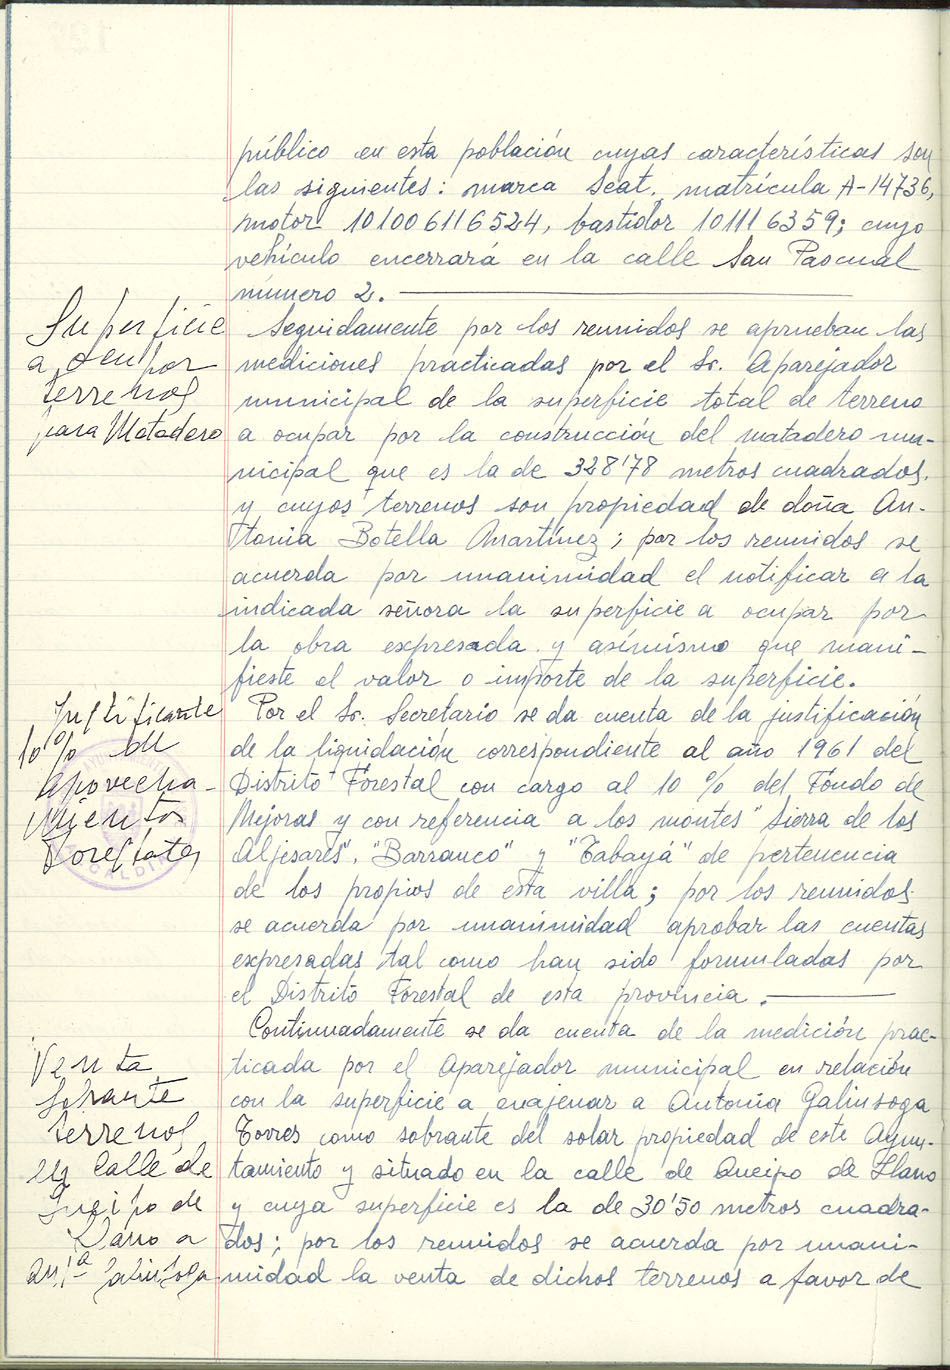 público en esta población cuyas características son
las siguientes: marca Seat, matrícula A-14736,
motor 101006116524, bastidor 101116359; cuyo
vehículo encerrará en la calle San Pascual
número 2.
Superficie
a ocupar
terrenos
para Matadero
Seguidamente por los reunidos se aprueban las
mediciones practicadas por el Sr. Aparejador
municipal de la superficie total de terreno
a ocupar por la construcción del matadero mu-
nicipal que es la de 328'78 metros cuadrados.
y cuyos terrenos son propiedad de doña An-
tonia Botella Martínez; por los reunidos se
acuerda por unanimidad el notificar a la
indicada señora la superficie a ocupar por
la obra expresada y asímismo que mani-
fieste el valor o importe de la superficie.
Justificante
10% de
aprovecha-
mientos
Forestales
Por el Sr. Secretario se da cuenta de la justificación
de la liquidación correspondiente al año 1961 del
Distrito Forestal con cargo al 10 % del Fondo de
Mejoras y con referencia a los montes "Sierra de los
Aljesares", "Barranco" y "Tabayá" de pertenencia
de los propios de esta villa; por los reunidos
se acuerda por unanimidad aprobar las cuentas
expresadas tal como han sido formuladas por
el Distrito Forestal de esta provincia.
Venta
sobrante
terrenos
en Calle de
Queipo de
Llano a
Ant.ª Galinsoga
Continuadamente se da cuenta de la medición prac-
ticada por el Aparejador municipal en relación
con la superficie a enajenar a Antonia Galinsoga
Torres como sobrante del solar propiedad de este Ayun-
tamiento y situado en la calle de Queipo de Llano
y cuya superficie es la de 30'50 metros cuadra-
dos; por los reunidos se acuerda por unani-
midad la venta de dichos terrenos a favor de